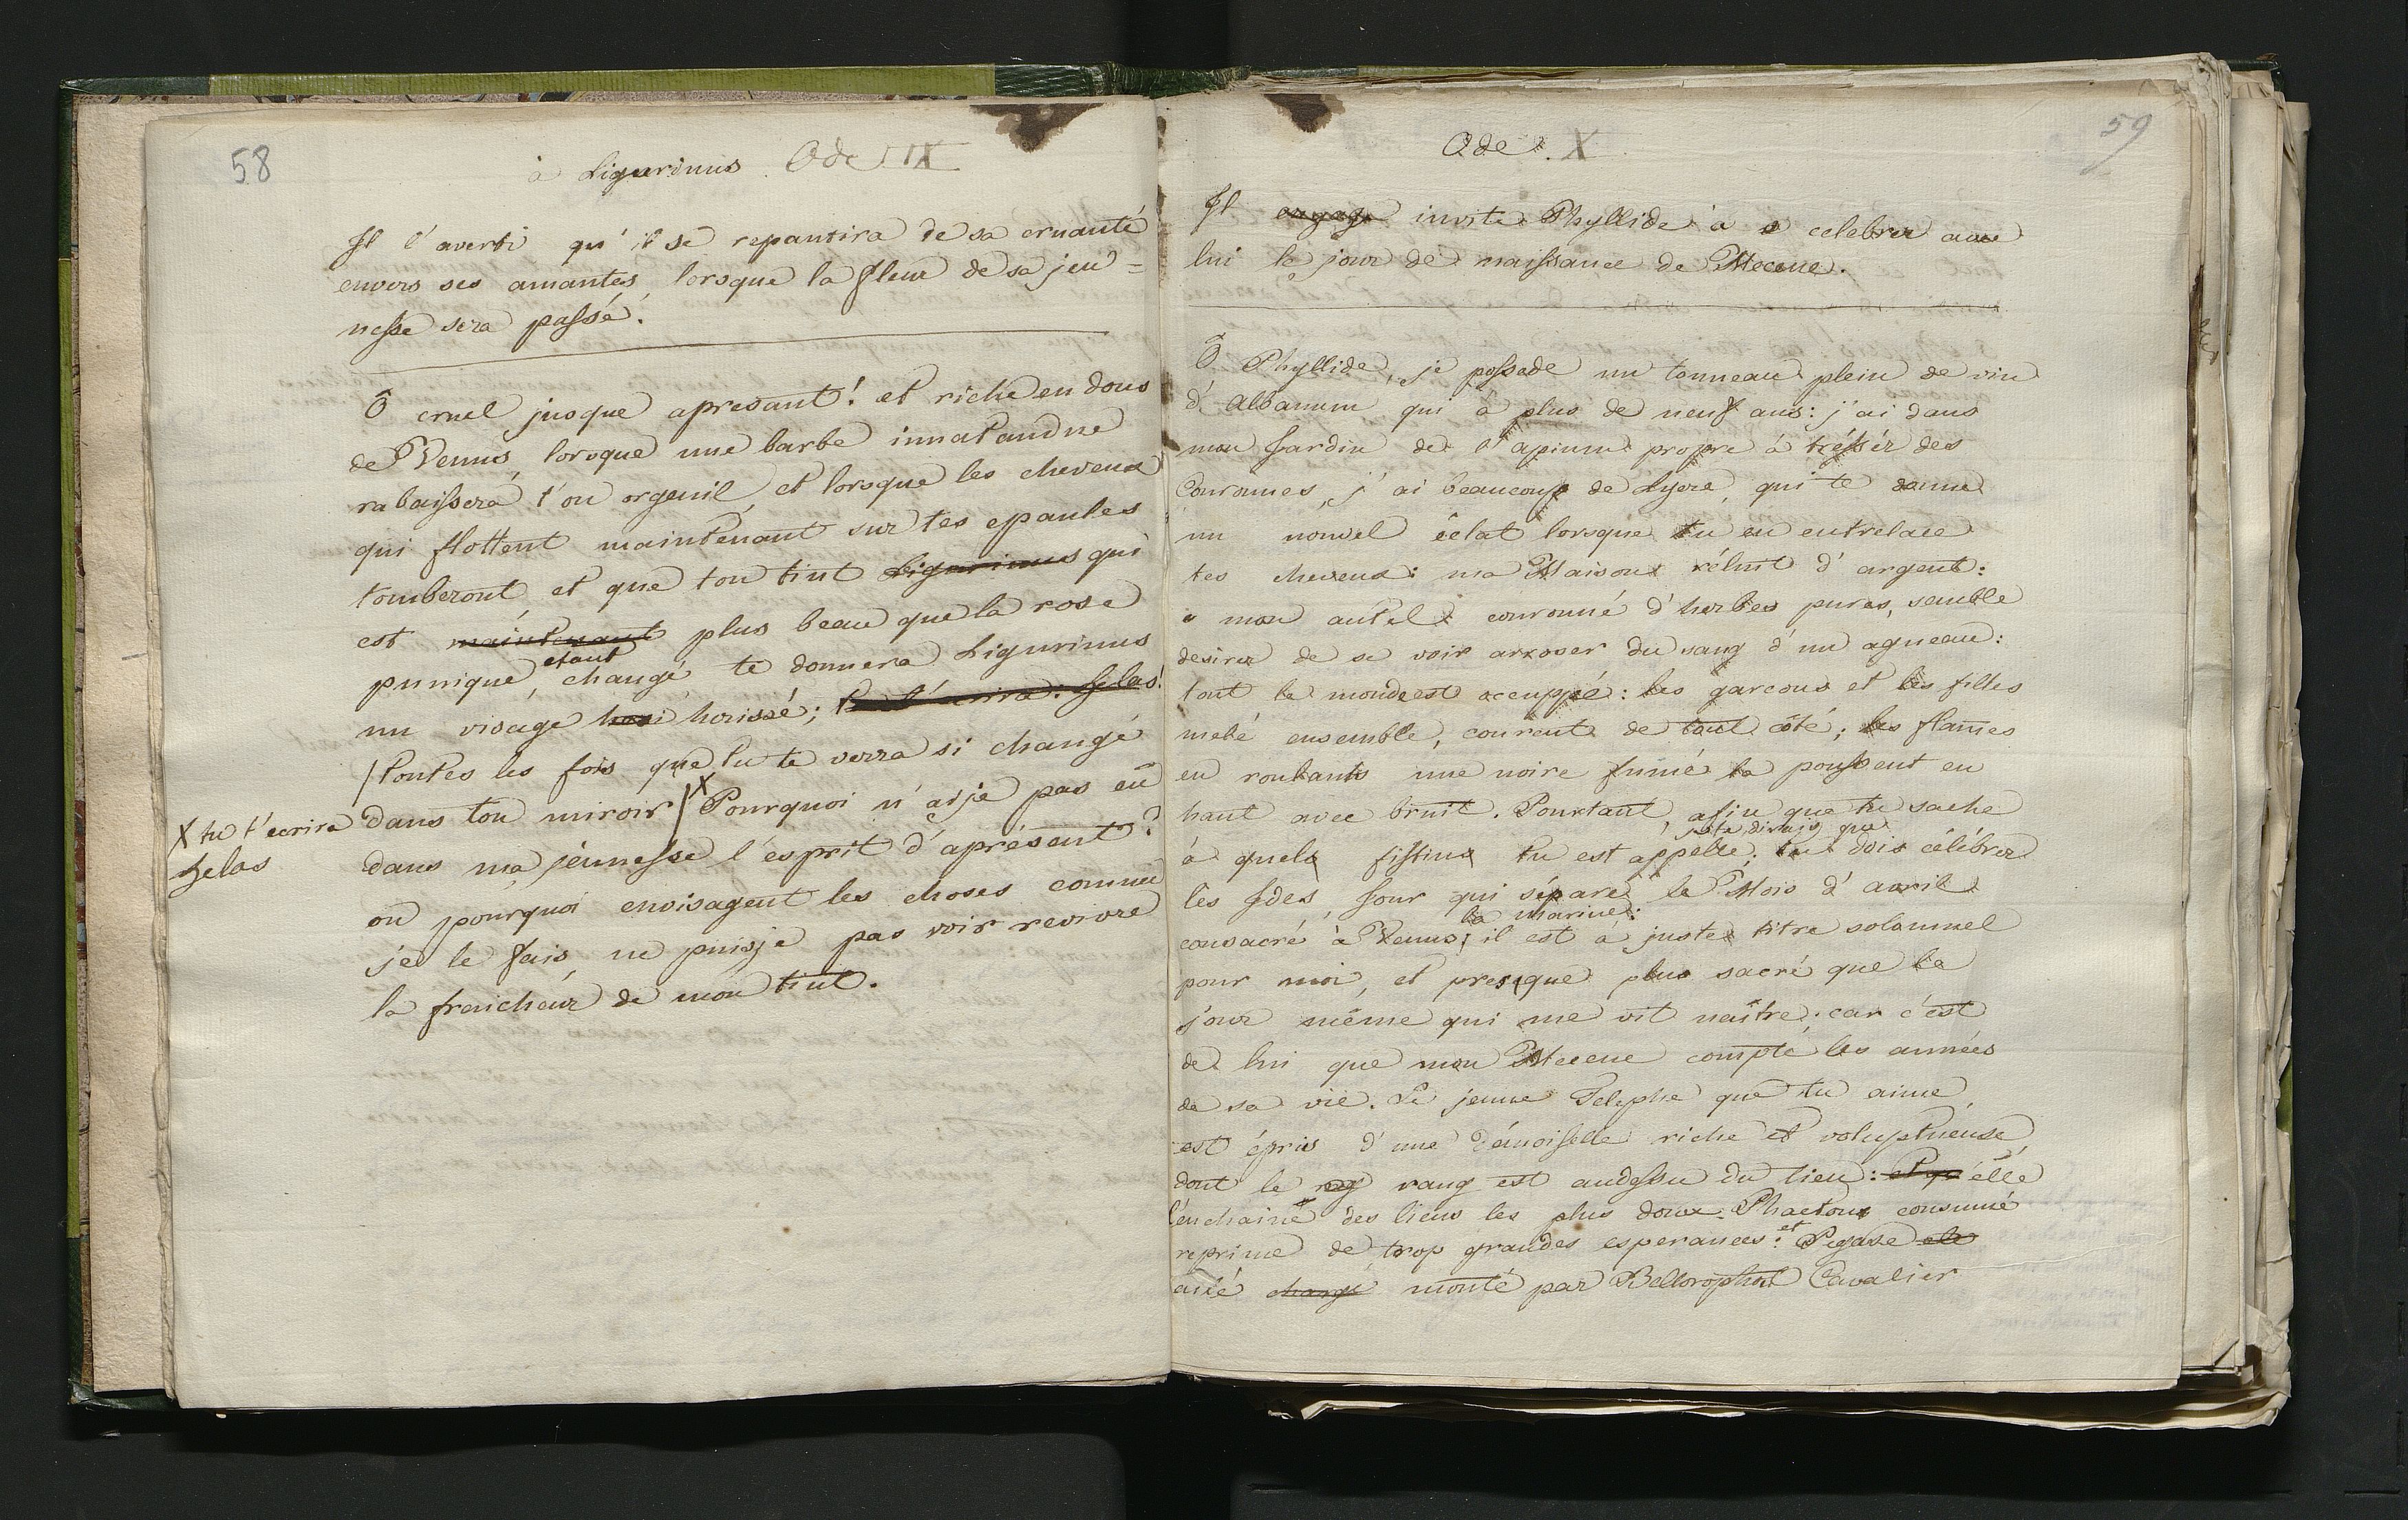 58
à Ligurinus Ode IX
Il l'averti qu'il se repantira de sa cruauté
envers ses amantes, lorsque la fleur de sa jeu=
nesse sera passé.
Ô cruel jusque apresant! et riche en dons
de Venus, lorsque une barbe innatandue
rabaissera t'on orgeuil, et lorsque les cheveux
qui flottent maintenant sur tes epaules
tomberont et que ton tint Ligurinus qui
est maintenant plus beau que la rose
etant
punique, changé te donnera Ligurinus
un visage heri herissé; helas!
toutes les fois que tu te verra si changé
dans ton miroir X Pourquoi n'aije pas eû
X tu t'ecrira
helas
dans ma jeunesse l'esprit d'aprésent?
ou pourquoi envisagent les choses comme
je le fais, ne puisje pas voir revivre
la fraicheur de mon tint.
59
Ode X
Il engage invite Phyllide à celebrer avec
lui le jour de naissance de Mecene.
Ô Phyllide, je possede un tonneau plein de vin
d'Albanum qui à plus de neuf ans: j'ai dans
mon Jardin de l'apium propre à tresser des
Couronnes, j'ai beaucoup de Lyere, qui te donne
un nouvel éclat lorsque tu en entrelace
tes cheveux: ma Maison réluit d'argent:
mon autel couronné d'herbes pures, semble
desirer de se voir arroser du sang d'un agneau:
tout le monde est occuppé: les garcons et les filles
melé ensemble, courent de tout côté; les flames
en roulants une noire fumé la poussent en
haut avec bruit. Pourtant, afin que tu sache
que
à quels fistins tu est appellé; tu dois célébrer
les Ides, Jour qui sépare le Mois d'avril
la marine:
consacré à Venus; il est à juste titre solannel
pour moi, et presque plus sacré que le
jour même qui me vit naître. car c'est
de lui que mon Mecene compte les années
de sa vie. Le jeune Telephe que tu aime,
est épris d'une démoiselle riche et voluptueuse
dont le rang est audessu du tien: elle
l'enchaine des liens les plus doux. Phaeton consumé
reprime de trop grandes esperances: et Pegase
ailé chargé monté par Bellorophont Cavalier